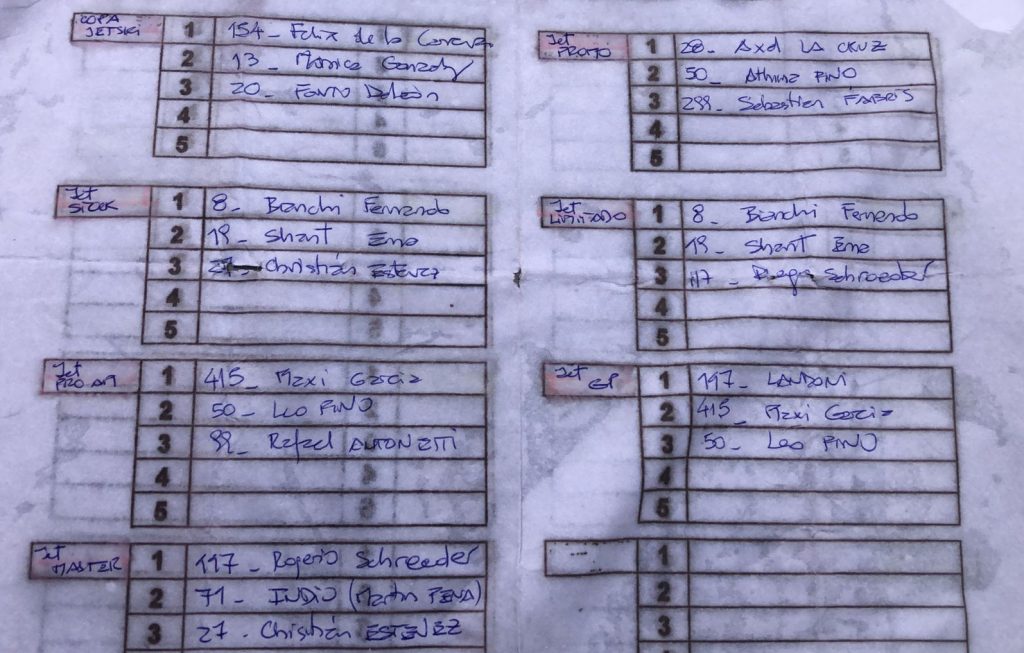 COPA JETSKI
1 154- Felix de la
2 13- Monica Gonzalez
3 20-
4
5
Jet PROMO
1 28- Axel LA CRUZ
2 50- Athina PINO
3 299- Sebastien FABRIS
4
5
Jet
1 8- Bianchi Fernando
2 19- Shant Eme
3 Christián Estevez
4
5
Jet LIMITADO
1 8- Bianchi Fernando
2 19- Shant Eme
3 117- Schroeder
4
5
Jet PRO AM
1 415- Maxi Garcia
2 50- Leo PINO
3 99- Rafael
4
5
Jet GP
1 197- LANDONI
2 415 Maxi Garcia
3 50- Leo PINO
4
5
Jet MASTER
1 117- Rogerio Schroeder
2 71- INDIO (Martin PENA)
3 27- Christián ESTEVEZ
1
2
3